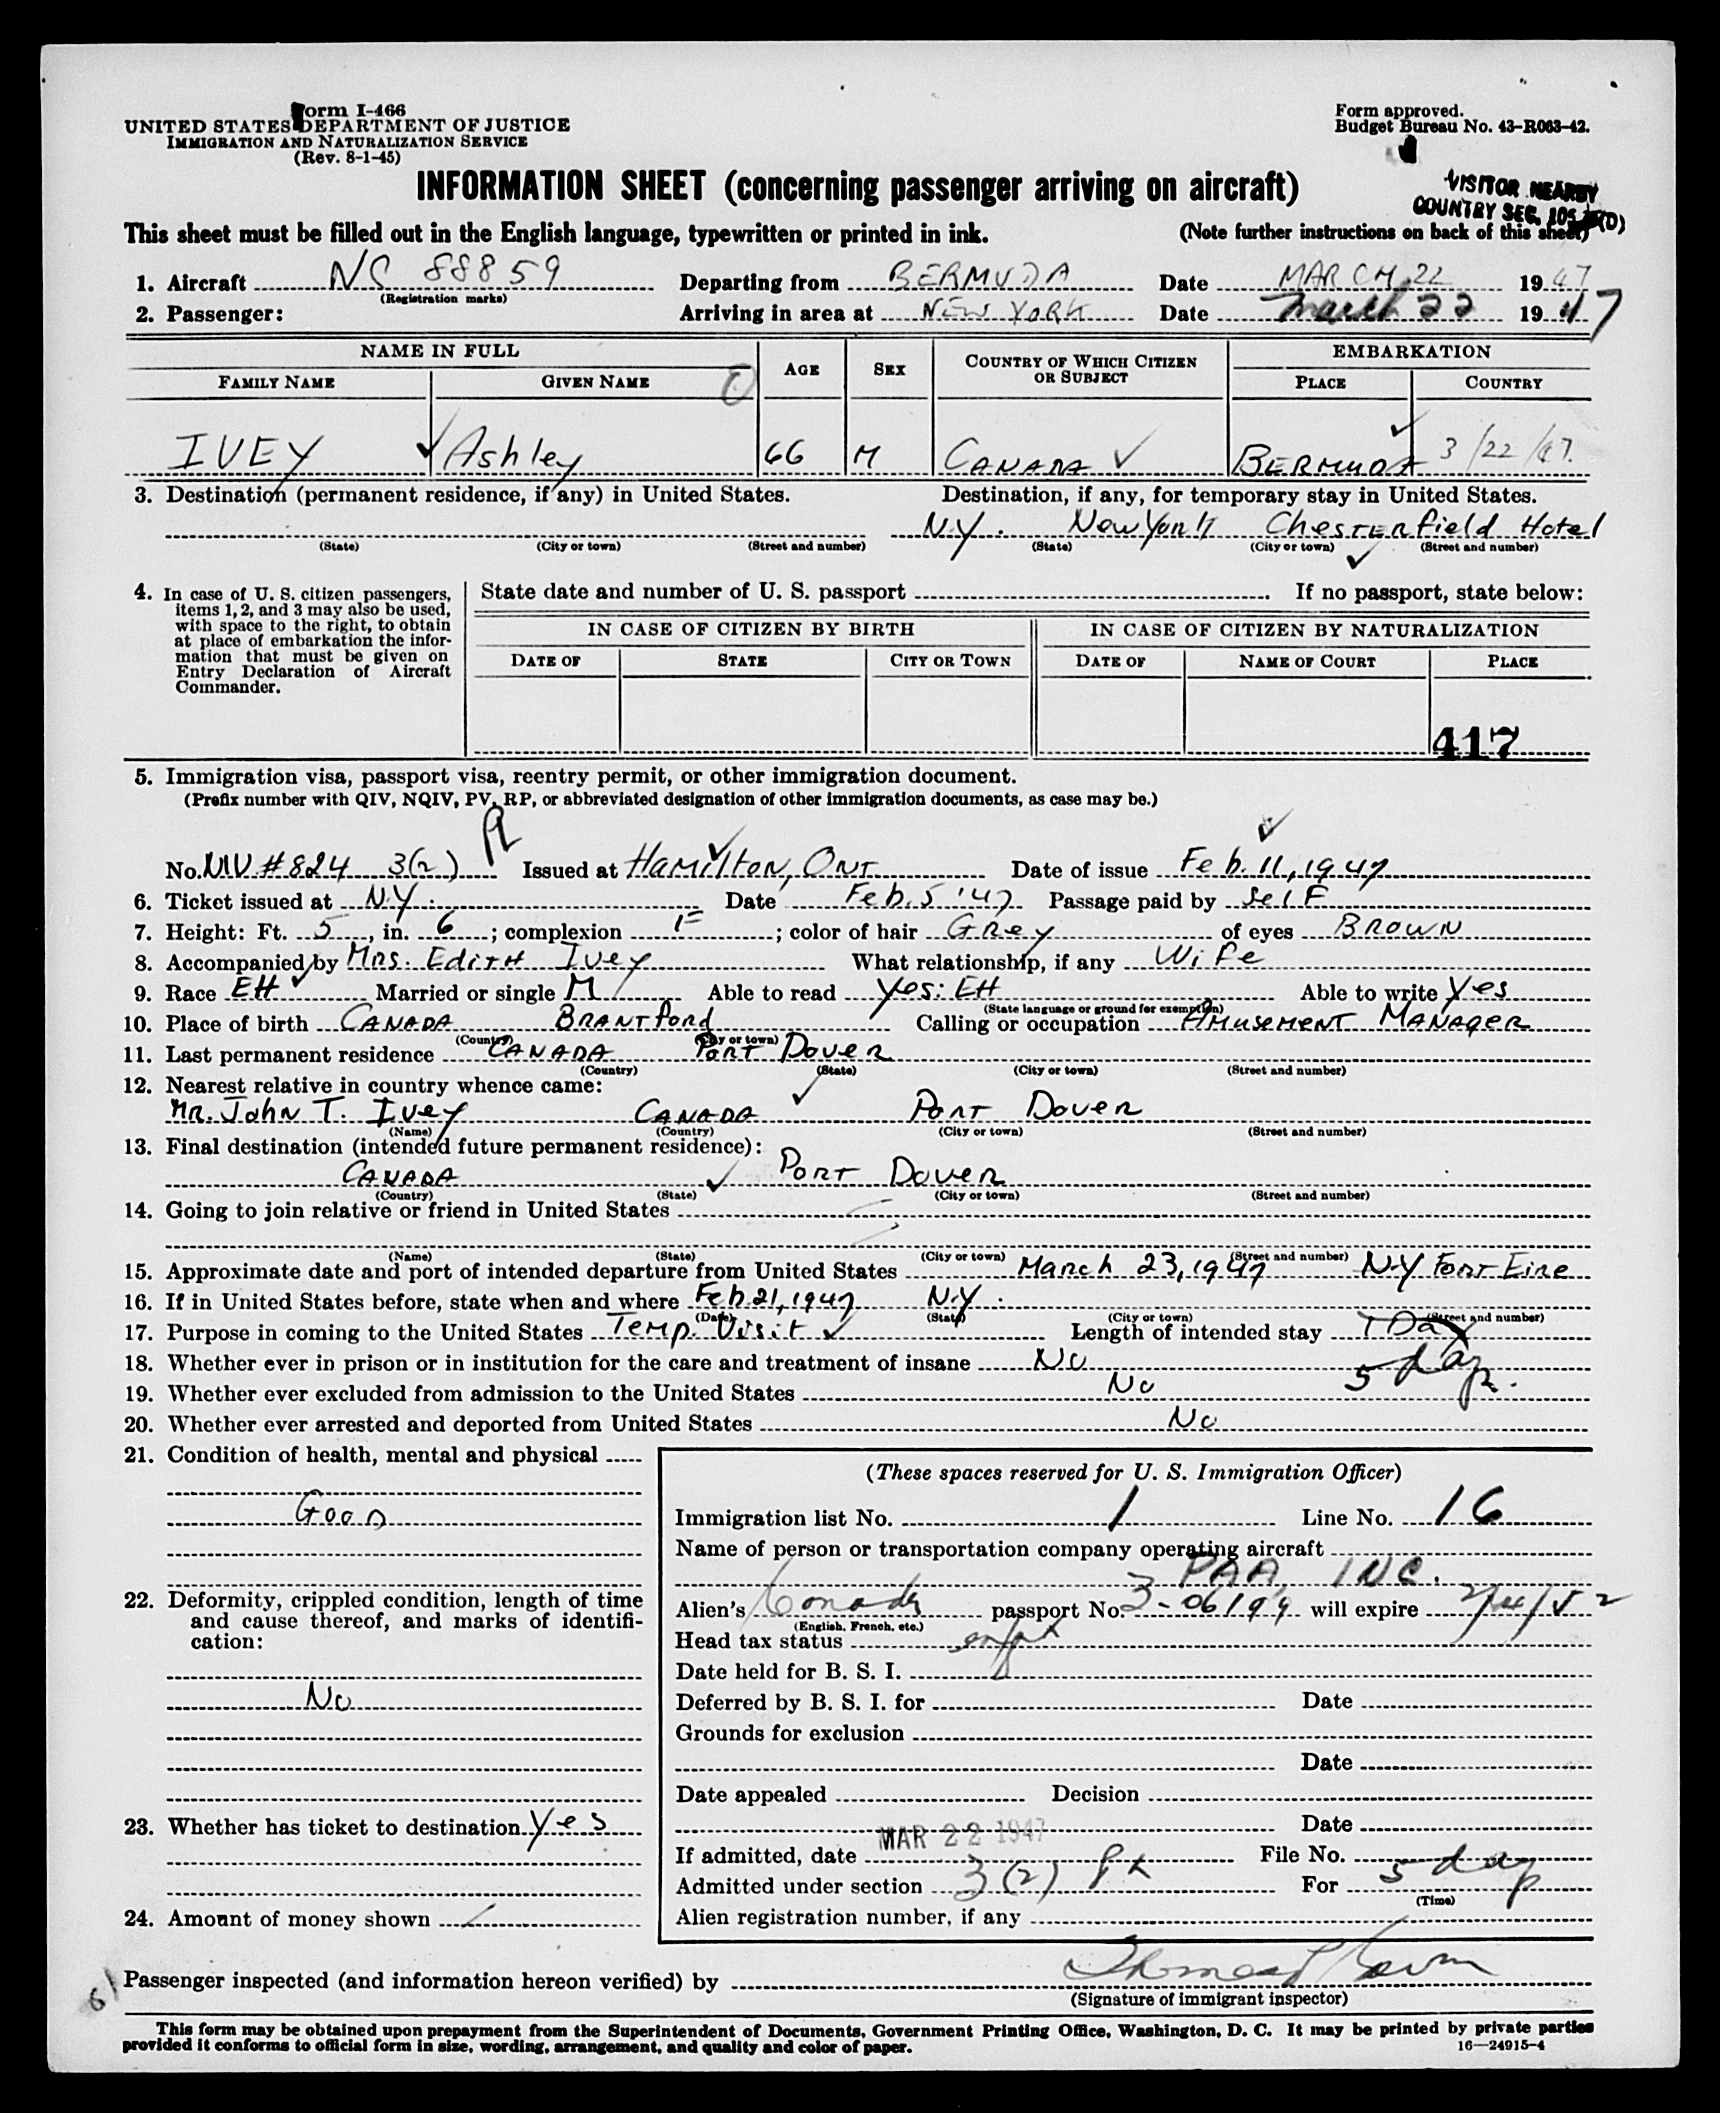 Form I-466
UNITED STATES DEPARTMENT OF JUSTICE
IMMIGRATION AND NATURALIZATION SERVICE
(Rev. 8-1-45)
Form approved.
Budget Bureau No. 43-R063-42.
INFORMATION SHEET (concerning passenger arriving on aircraft)
VISITOR NEARBY
COUNTRY SEC. 105
This sheet must be filled out in the English language, typewritten or printed in ink.
(Note further instructions on back of this sheet)
1. Aircraft NC 88859 Departing from BERMUDA Date MARCH 22 1947
(Registration marks)
2. Passenger: Arriving in area at NEW YORK Date March 22 1947
NAME IN FULL AGE SEX COUNTRY OF WHICH CITIZEN OR SUBJECT EMBARKATION
FAMILY NAME GIVEN NAME PLACE COUNTRY
IVEY Ashley 66 M CANADA BERMUDA 3/22/47
3. Destination (permanent residence, if any) in United States. Destination, if any, for temporary stay in United States.
N.Y. New York Chesterfield Hotel
(State) (City or town) (Street and number) (State) (City or town) (Street and number)
4. In case of U. S. citizen passengers,
items 1, 2, and 3 may also be used,
with space to the right, to obtain
at place of embarkation the infor-
mation that must be given on
Entry Declaration of Aircraft
Commander.
State date and number of U. S. passport If no passport, state below:
IN CASE OF CITIZEN BY BIRTH IN CASE OF CITIZEN BY NATURALIZATION
DATE OF STATE CITY OR TOWN DATE OF NAME OF COURT PLACE
417
5. Immigration visa, passport visa, reentry permit, or other immigration document.
(Prefix number with QIV, NQIV, PV, RP, or abbreviated designation of other immigration documents, as case may be.)
No. NIV #824 3(2) Issued at HAMILTON, ONT Date of issue Feb. 11, 1947
6. Ticket issued at N.Y. Date Feb. 5 '47 Passage paid by Self
7. Height: Ft. 5, in. 6; complexion F; color of hair Grey of eyes BROWN
8. Accompanied by Mrs. Edith Ivey What relationship, if any Wife
9. Race EH Married or single M Able to read Yes: EH Able to write Yes
(State language or ground for exemption)
10. Place of birth CANADA BRANTford Calling or occupation AMUSEMENT MANAGER
(Country) (City or town)
11. Last permanent residence CANADA PORT DOVER
(Country) (State) (City or town) (Street and number)
12. Nearest relative in country whence came:
MR. John T. Ivey CANADA PORT DOVER
(Name) (Country) (City or town) (Street and number)
13. Final destination (intended future permanent residence):
CANADA PORT DOVER
(Country) (State) (City or town) (Street and number)
14. Going to join relative or friend in United States
(Name) (State) (City or town) (Street and number)
15. Approximate date and port of intended departure from United States March 23, 1947 N.Y Fort Erie
16. If in United States before, state when and where Feb 21, 1947 N.Y.
(Date) (State) (City or town) (Street and number)
17. Purpose in coming to the United States Temp. Visit Length of intended stay 1 Day
18. Whether ever in prison or in institution for the care and treatment of insane No 5 days
19. Whether ever excluded from admission to the United States No
20. Whether ever arrested and deported from United States No
21. Condition of health, mental and physical
GOOD
22. Deformity, crippled condition, length of time
and cause thereof, and marks of identifi-
cation:
No
23. Whether has ticket to destination Yes
24. Amount of money shown
(These spaces reserved for U. S. Immigration Officer)
Immigration list No. 1 Line No. 16
Name of person or transportation company operating aircraft
PAA, INC.
Alien's Canada passport No. 3-06199 will expire
(English, French, etc.)
Head tax status
Date held for B. S. I.
Deferred by B. S. I. for Date
Grounds for exclusion
Date
Date appealed Decision
Date
If admitted, date MAR 22 1947 File No.
Admitted under section 3(2) For 5 days
(Time)
Alien registration number, if any
Passenger inspected (and information hereon verified) by
(Signature of immigrant inspector)
This form may be obtained upon prepayment from the Superintendent of Documents, Government Printing Office, Washington, D. C. It may be printed by private parties
provided it conforms to official form in size, wording, arrangement, and quality and color of paper.
16—24915-4